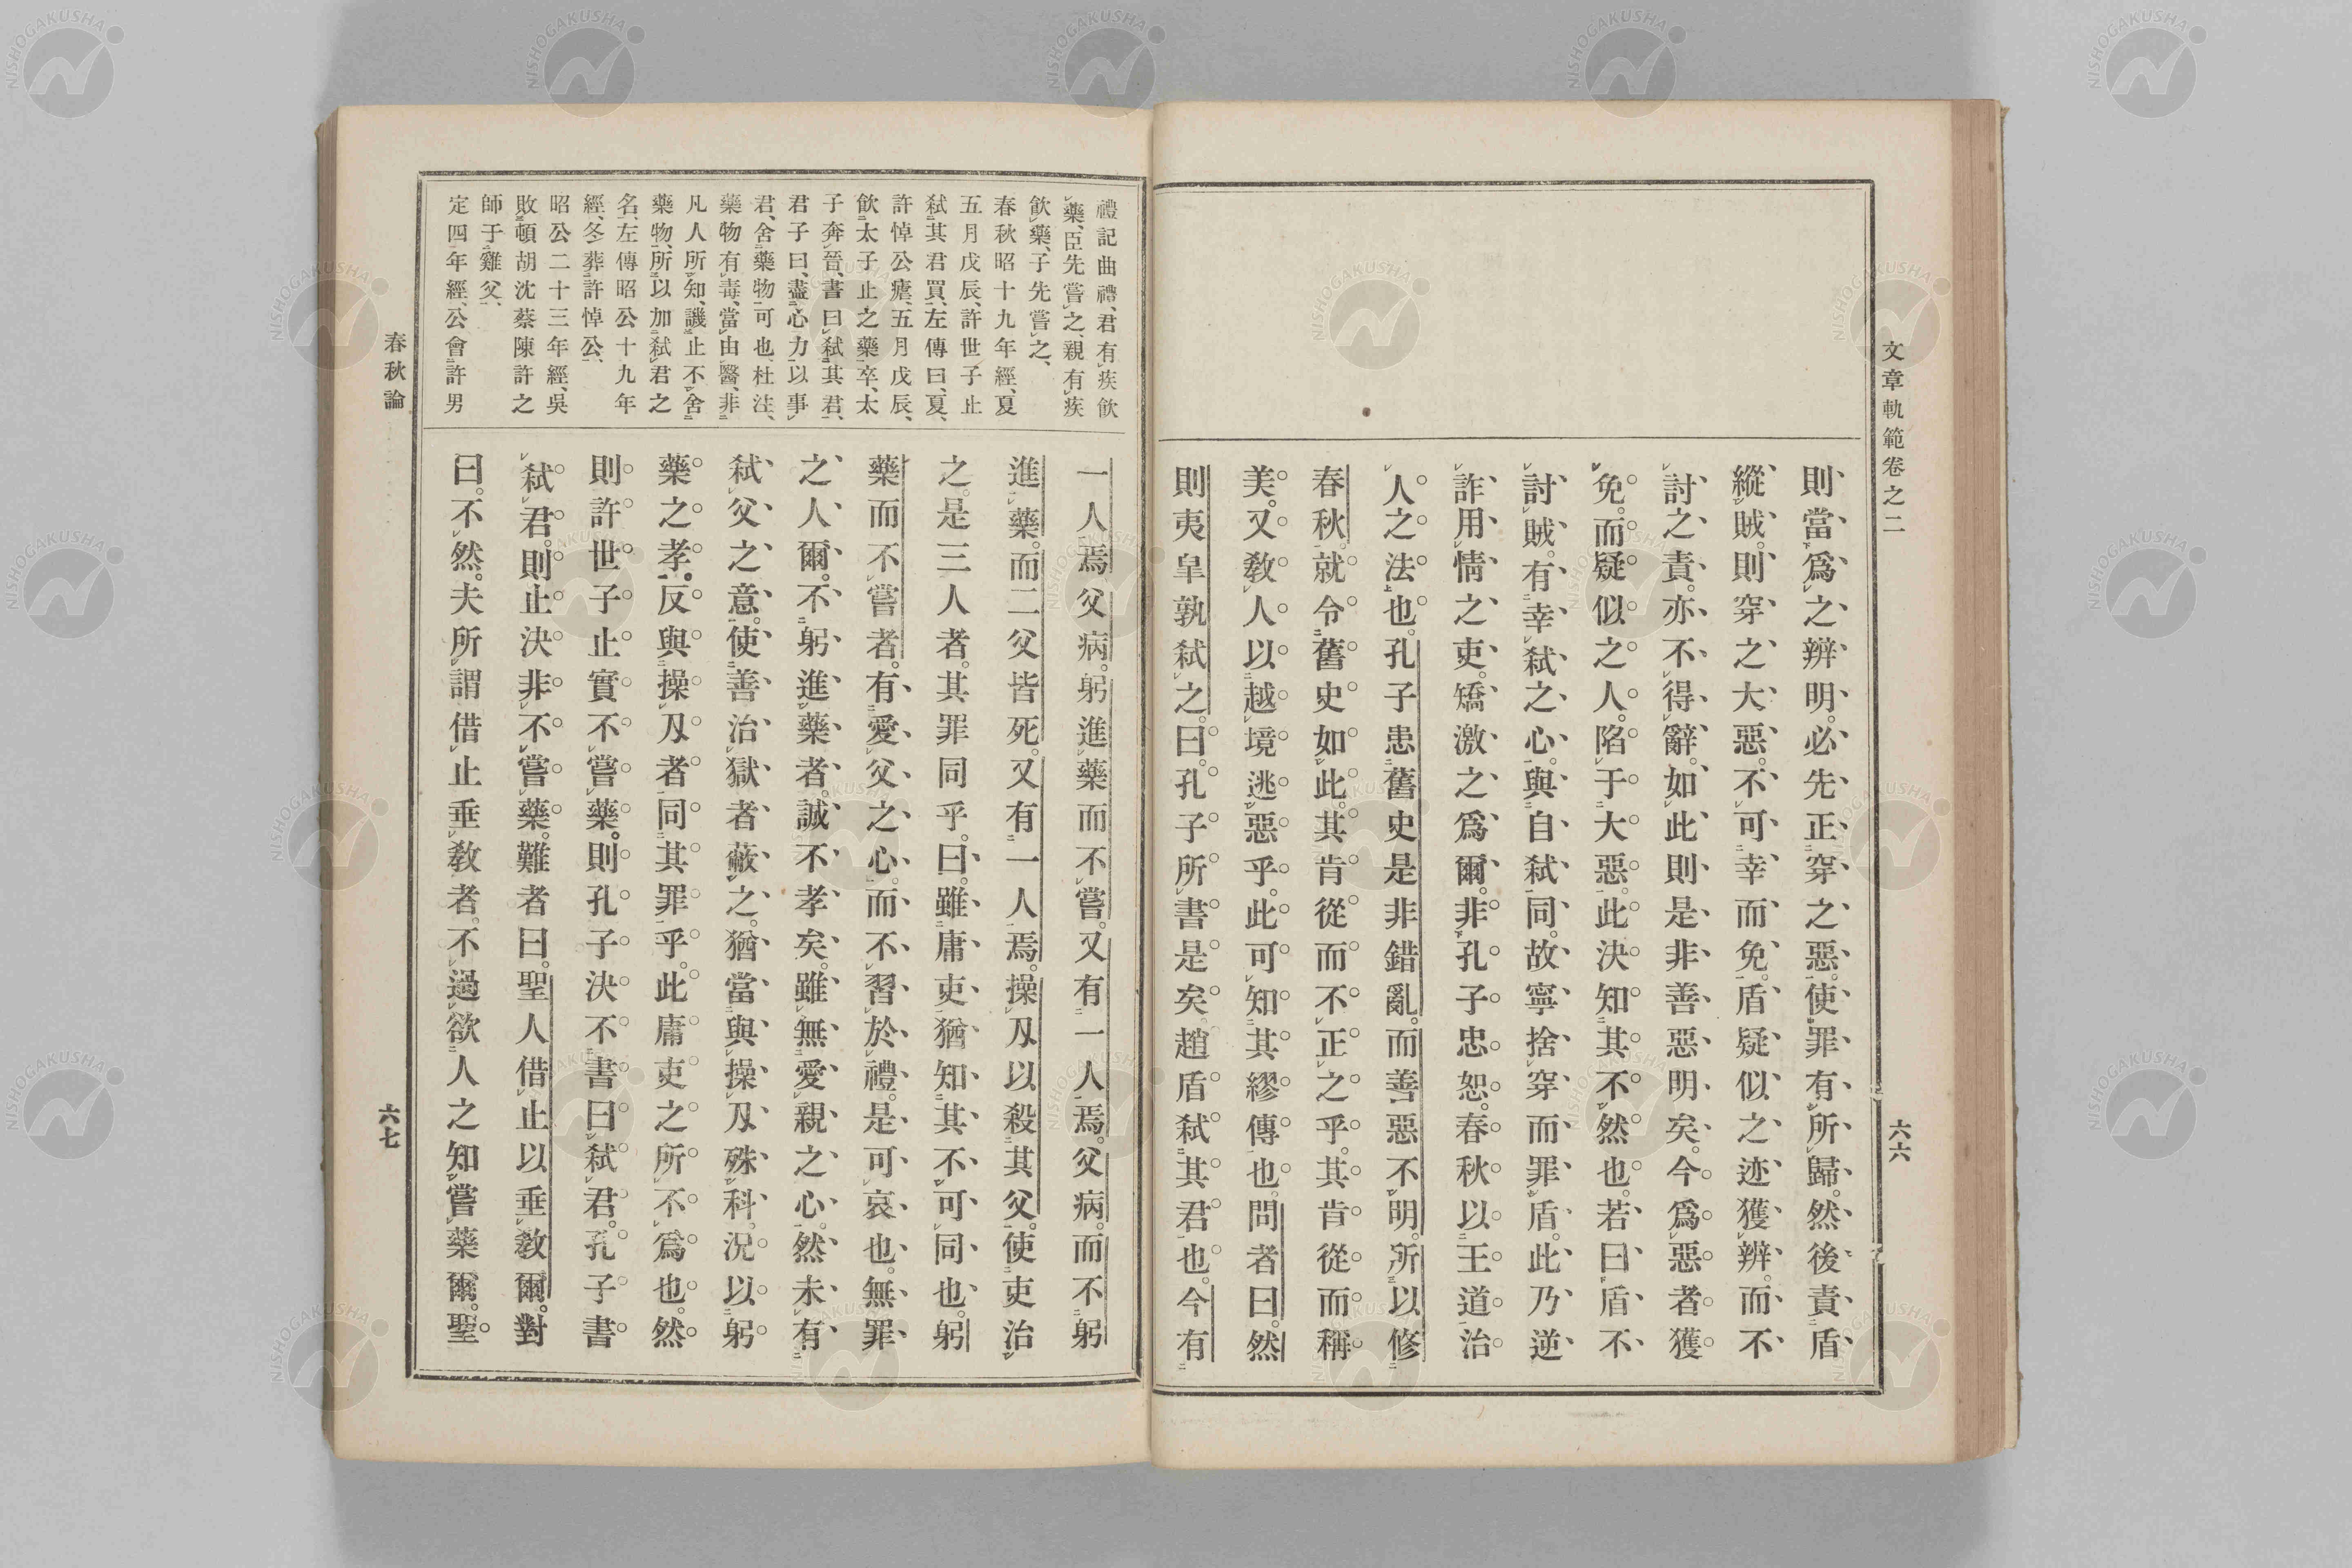 文章軌範卷之二
六六
則當爲之辨明。必先正穿之惡。使罪有所歸。然後責盾
縱賊。則穿之大惡。不可幸而免。盾疑似之迹獲辨。而不
討之責。亦不得辭。如此則是非善惡明矣。今爲惡者獲
免。而疑似之人。陷于大惡。此決知其不然也。若曰盾不
討賊。有幸弑之心。與自弑同。故寧捨穿而罪盾。此乃逆
詐用情之吏。矯激之爲爾。非孔子忠恕。春秋以王道治
人之法也。孔子患舊史是非錯亂。而善惡不明。所以修
春秋。就令舊史如此。其肯從而不正之乎。其肯從而稱
美。又敎人以越境逃惡乎。此可知其繆傳也。問者曰。然
則夷皐孰弑之。曰。孔子所書是矣。趙盾弑其君也。今有
禮記曲禮、君有疾飮
藥、臣先嘗之、親有疾
飮藥、子先嘗之、
春秋昭十九年經、夏
五月戊辰、許世子止
弑其君買、左傳曰、夏、
許悼公瘧、五月戊辰、
飮太子止之藥卒、太
子奔晉、書曰弑其君、
君子曰、盡心力以事
君、舍藥物可也、杜注、
藥物有毒、當由醫、非
凡人所知、譏止不舍
藥物、所以加弑君之
名、左傳昭公十九年
經、冬葬許悼公、
昭公二十三年經、吳
敗頓胡沈蔡陳許之
師于雞父、
定四年經、公會許男
一人焉父病。躬進藥而不嘗。又有一人焉。父病。而不躬
進藥。而二父皆死。又有一人焉。操刄以殺其父。使吏治
之。是三人者。其罪同乎。曰。雖庸吏猶知其不可同也。躬
藥而不嘗者。有愛父之心。而不習於禮。是可哀也。無罪
之人爾。不躬進藥者。誠不孝矣。雖無愛親之心。然未有
弑父之意。使善治獄者蔽之。猶當與操刄殊科。況以躬
藥之孝。反與操刄者同其罪乎。此庸吏之所不爲也。然
則許世子止實不嘗藥。則孔子決不書曰弑君。孔子書
弑君。則止決非不嘗藥。難者曰。聖人借止以垂敎爾。對
曰。不然。夫所謂借止垂敎者。不過欲人之知嘗藥爾。聖
春秋論
六七